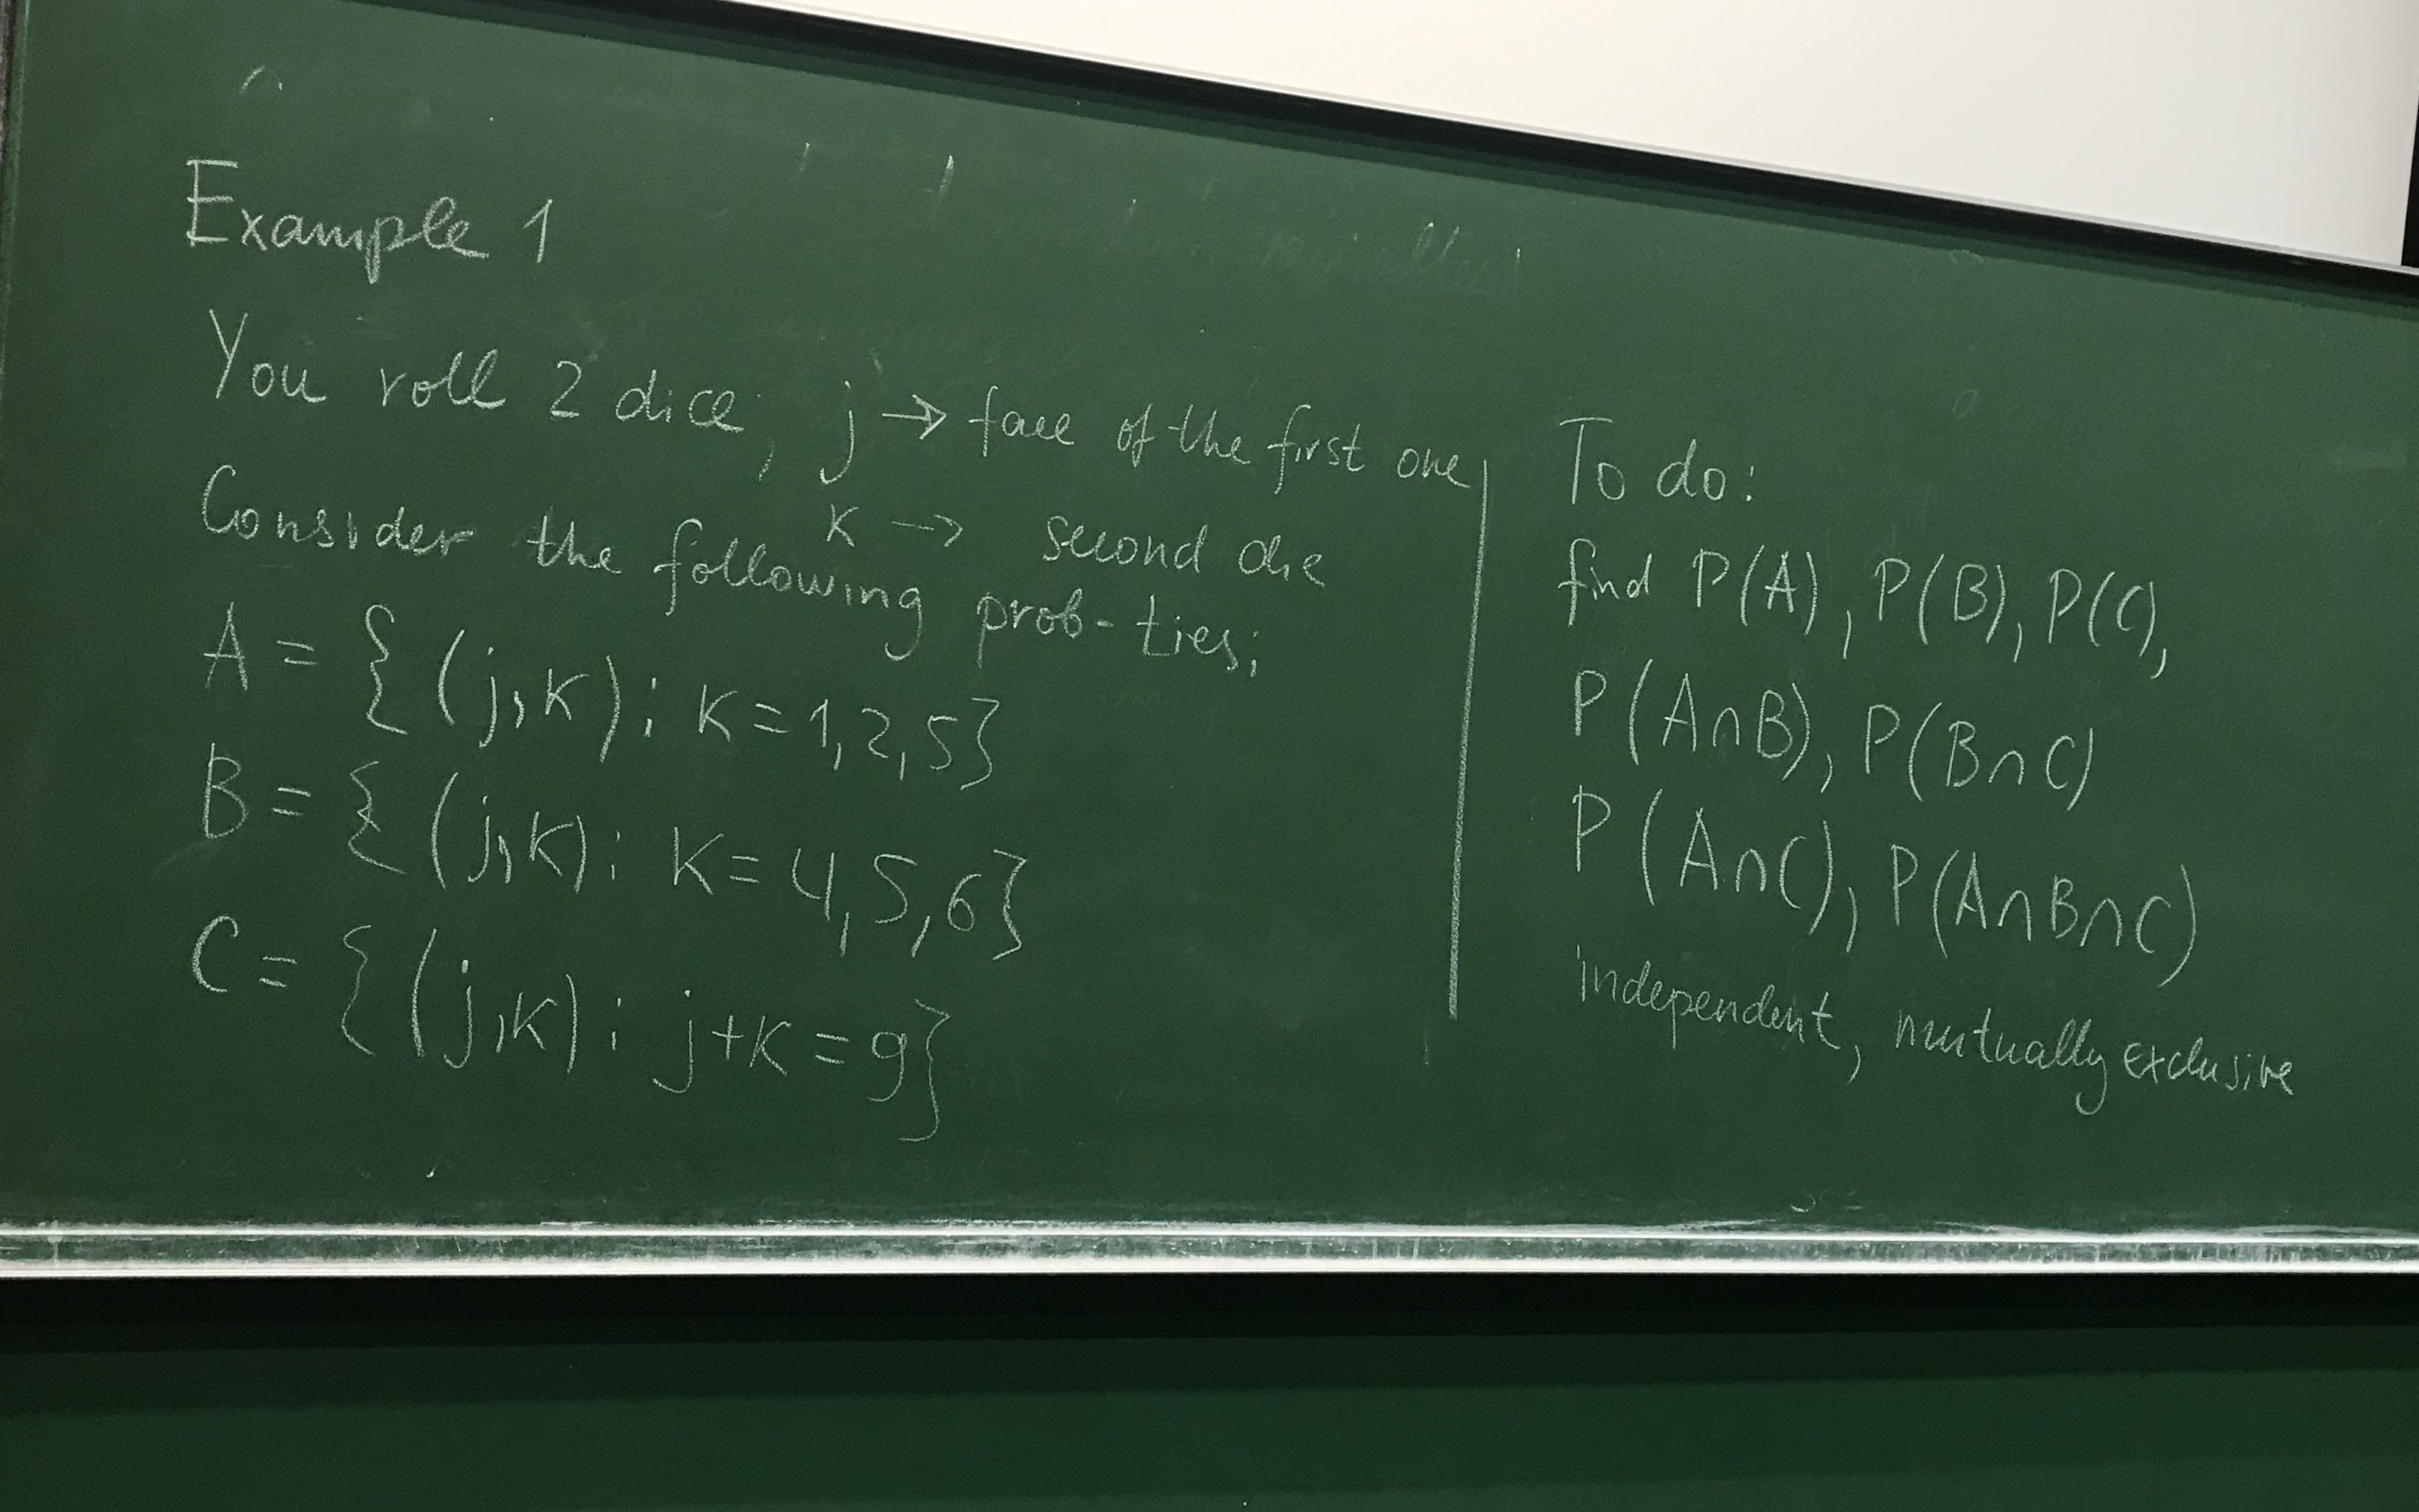 Example 1
You roll 2 dice; j → face of the first one
K → second die
Consider the following prob-ties;
A = {(j,K): K=1,2,5}
B = {(j,K): K=4,5,6}
C = {(j,K): j+K=9}
To do:
find P(A), P(B), P(C),
P(A∩B), P(B∩C)
P(A∩C), P(A∩B∩C)
independent, mutually exclusive